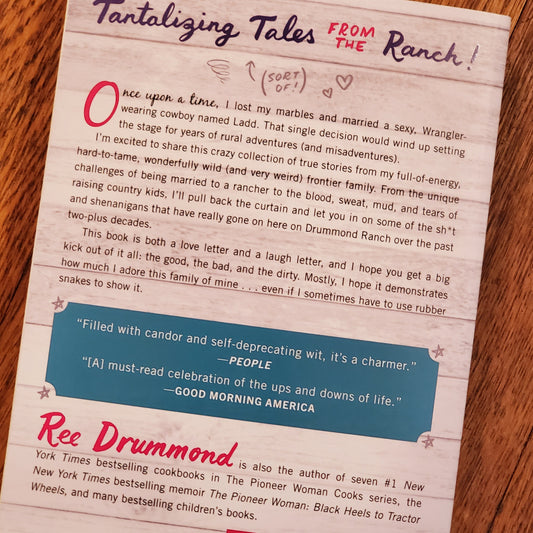 Tantalizing Tales FROM THE Ranch!
(SORT OF!)
Once upon a time, I lost my marbles and married a sexy, Wrangler-
wearing cowboy named Ladd. That single decision would wind up setting
the stage for years of rural adventures (and misadventures).
I'm excited to share this crazy collection of true stories from my full-of-energy,
hard-to-tame, wonderfully wild (and very weird) frontier family. From the unique
challenges of being married to a rancher to the blood, sweat, mud, and tears of
raising country kids, I'll pull back the curtain and let you in on some of the sh*t
and shenanigans that have really gone on here on Drummond Ranch over the past
two-plus decades.
This book is both a love letter and a laugh letter, and I hope you get a big
kick out of it all: the good, the bad, and the dirty. Mostly, I hope it demonstrates
how much I adore this family of mine . . . even if I sometimes have to use rubber
snakes to show it.
“Filled with candor and self-deprecating wit, it's a charmer.”
—PEOPLE
“[A] must-read celebration of the ups and downs of life.”
—GOOD MORNING AMERICA
Ree Drummond is also the author of seven #1 New
York Times bestselling cookbooks in The Pioneer Woman Cooks series, the
New York Times bestselling memoir The Pioneer Woman: Black Heels to Tractor
Wheels, and many bestselling children's books.